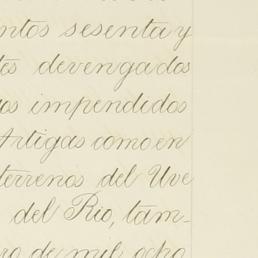 ntos sesenta y
tes devengados
os impendidos
Artigas como en
terrenos del Uve
del Rio, tam-
ro de mil ocho